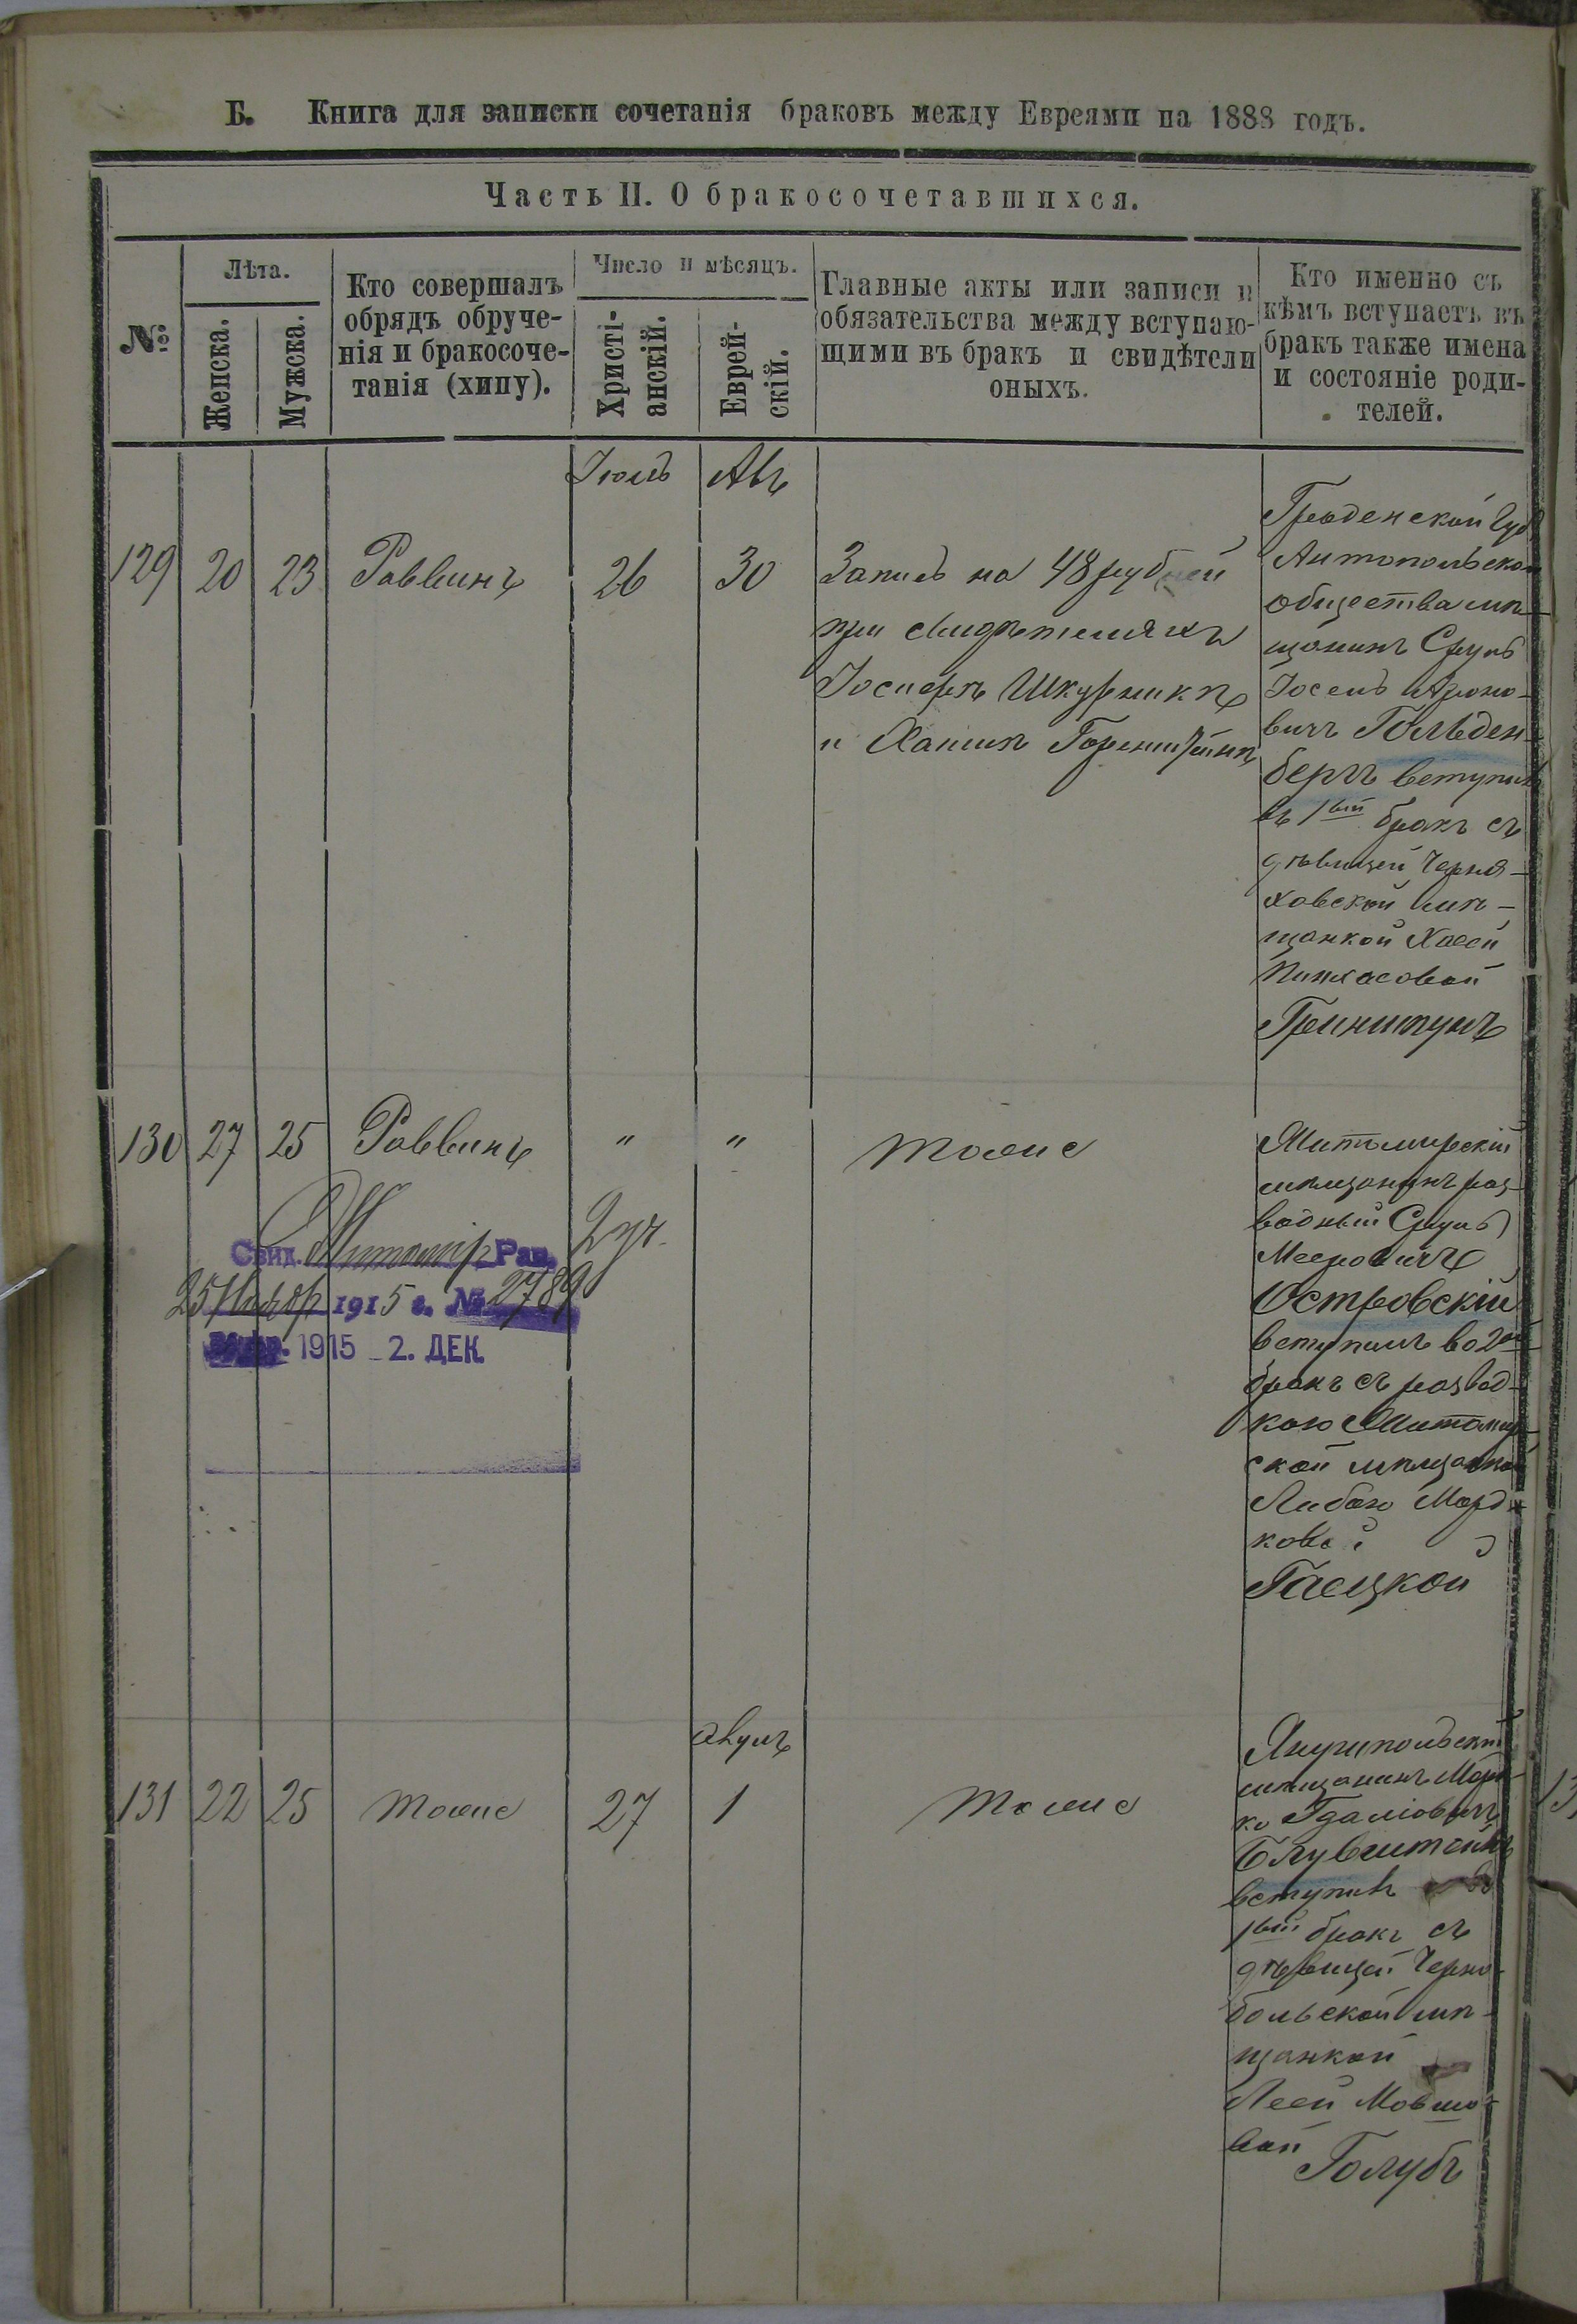 Б. Книга для записки сочетанія браковъ между Евреями на 1888 годъ.
Часть II. О бракосочетавшихся.
№
Лѣта.
Женска.
Мужска.
Кто совершалъ
обрядъ обруче-
нія и бракосоче-
танія (хипу).
Число и мѣсяцъ.
Христі-
анскій.
Еврей-
скій.
Главные акты или записи и
обязательства между вступаю-
щими въ бракъ и свидѣтели
оныхъ.
Кто именно съ
кѣмъ вступаетъ въ
бракъ также имена
и состояніе роди-
телей.
Іюль Авъ
129 20 23 Раввинъ 26 30
Запись на 48 рублей
при свидѣтеляхъ
Іосифѣ Шкурникѣ
и Хаимѣ Горенштейнѣ
Гродненской Губ
Антопольско
общества мѣ-
щанинъ Сруль
Іосель Ароно-
вичъ Гольден-
бергъ вступилъ
въ 1вый бракъ съ
дѣвицей Черня-
ховской мѣ-
щанкой Хасей
Пинхасовой
Гринштунъ
130 27 25 Раввинъ " " тоже
Житомирскій
мѣщанинъ раз-
водный Сруль
Мееровичъ
Островскій
вступилъ во 2ой
бракъ съ развод-
кою Житомир-
ской мѣщанкой
Либою Морд-
ковой
Гаецкой
Свид. Житомір Рав.
25 Ноябр 1915 г. № 2789
1915 2. ДЕК.
Элулъ
131 22 25 тоже 27 1 тоже
Янушпольскій
мѣщанинъ Морд-
ко Гдаліовичъ
Блувштейнъ
вступилъ въ
1вый бракъ съ
дѣвицей Черно-
больской мѣ-
щанкой
Леей Мовшо-
вой
Голубъ